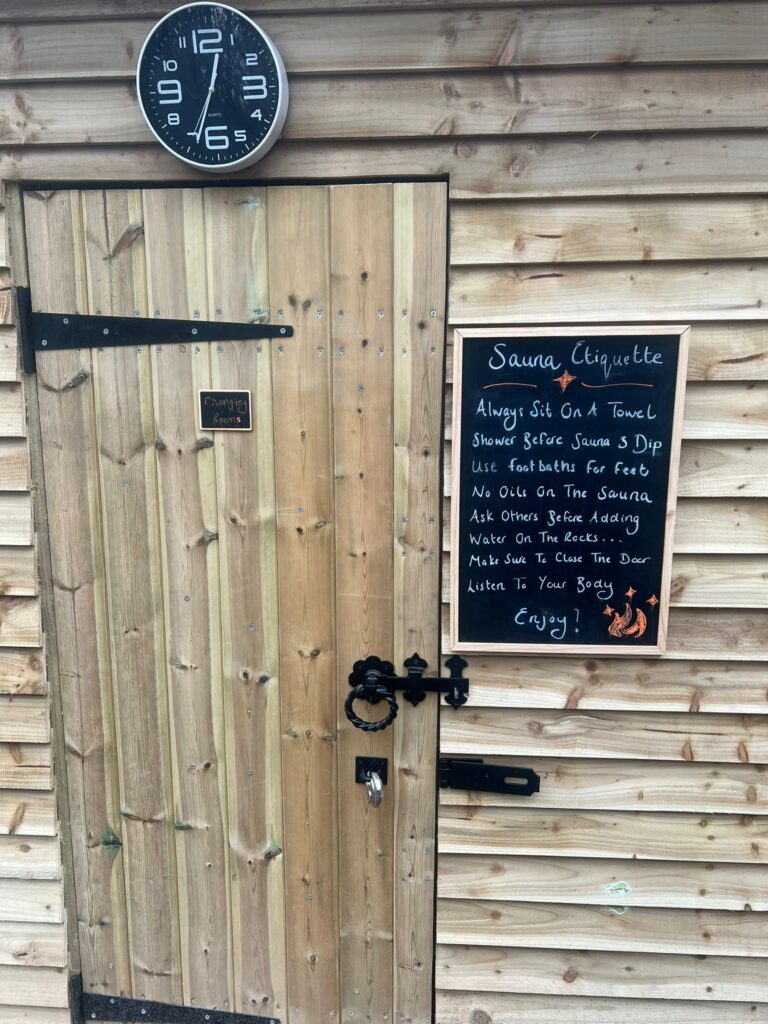 11 12 1
10 2
9 3
QUARTZ
8 4
6 5
Changing
Rooms
Sauna Etiquette
Always Sit On A Towel
Shower Before Sauna & Dip
Use footbaths for feet
No Oils On The Sauna
Ask Others Before Adding
Water On The Rocks...
Make Sure To Close The Door
Listen To Your Body
Enjoy!